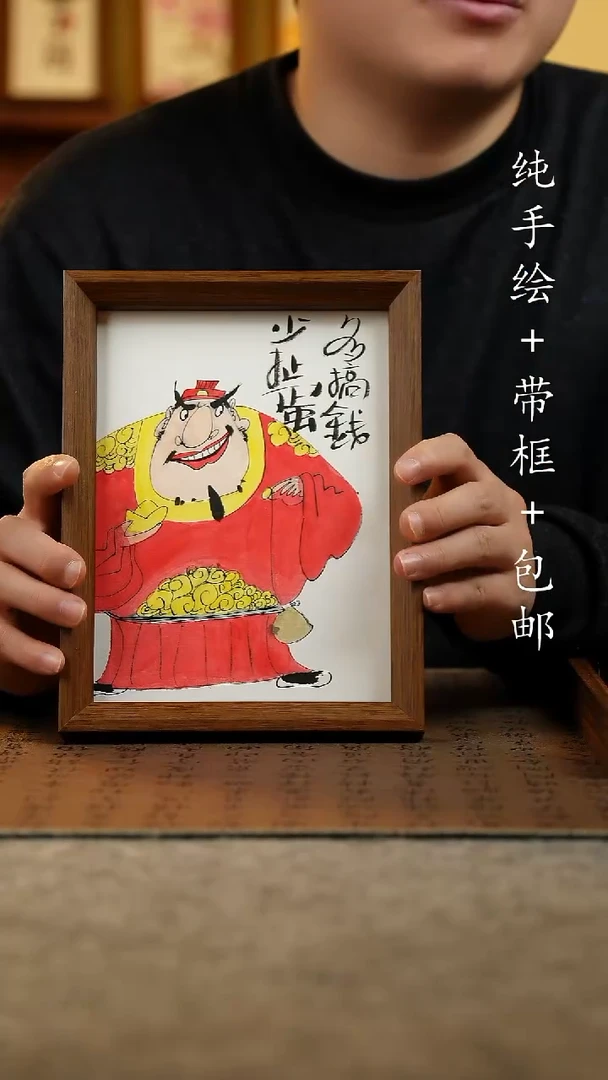 多搞錢
少扯蛋
纯手绘+带框+包邮